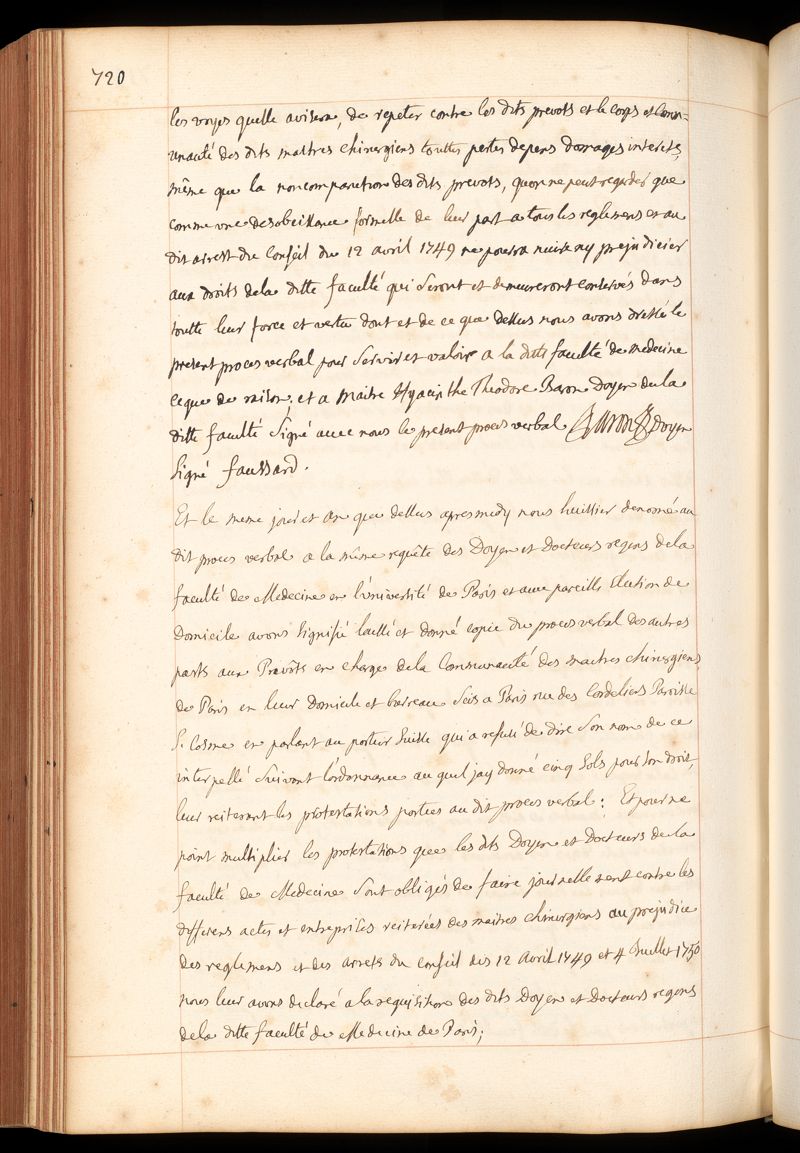 720
les voyes quelle avisera, de repeter contre les dits prevots et le corps et Commu-
unauté des dits maitres chirurgiens touttes pertes depens domages interets,
même que la noncomparution des dits prevots, quon ne peut regarder que
comme une desobeissance formelle de leur part a tous les reglemens et au
dit arrest du Conseil du 12 avril 1749 ne pourra nuire ny prejudicier
aux droits dela ditte faculté qui seront et demeureront conservés dans
toutte leur force et vertu dont et de ce que dessus nous avons dressé le
present proces verbal pour servir et valoir a la ditte faculté de medecine
ce que de raison, et a maitre Hyacinthe Theodore Baron Doyen de la
ditte faculté signé avec nous le present proces verbal Baron Doyen
signé faussard.
Et le meme jour et an que dessus apres midy nous huissier denommé au
dit proces verbal a la même requête des Doyen et Docteurs regens de la
faculté de Medecine en l'université de Paris et aux pareille Election de
Domicile avons signifié laissé et donné copie du proces verbal des autres
parts aux Prevôts en charge dela Communauté des maitres chirurgiens
de Paris en leur Domicile et bureau seis a Paris rue des Cordeliers Paroisse
S. Cosme en parlant au porteur suisse qui a refusé de dire son nom de ce
interpellé suivant l'ordonnance auquel jay donné cinq sols pour son droit,
leur reiterant les protestations portées au dit proces verbal: Et pour ne
point multiplier les protestations que les dits Doyen et Docteurs de la
faculté de Medecine sont obligés de faire journellement contre les
differens actes et entreprises reiterées des maitres chirurgiens au prejudice
des reglemens et des arrets du conseil des 12 Avril 1749 et 4 Juillet 1750
nous leur avons declaré a la requisition des dits Doyen et Docteurs regens
dela ditte faculté de Medecine de Paris;